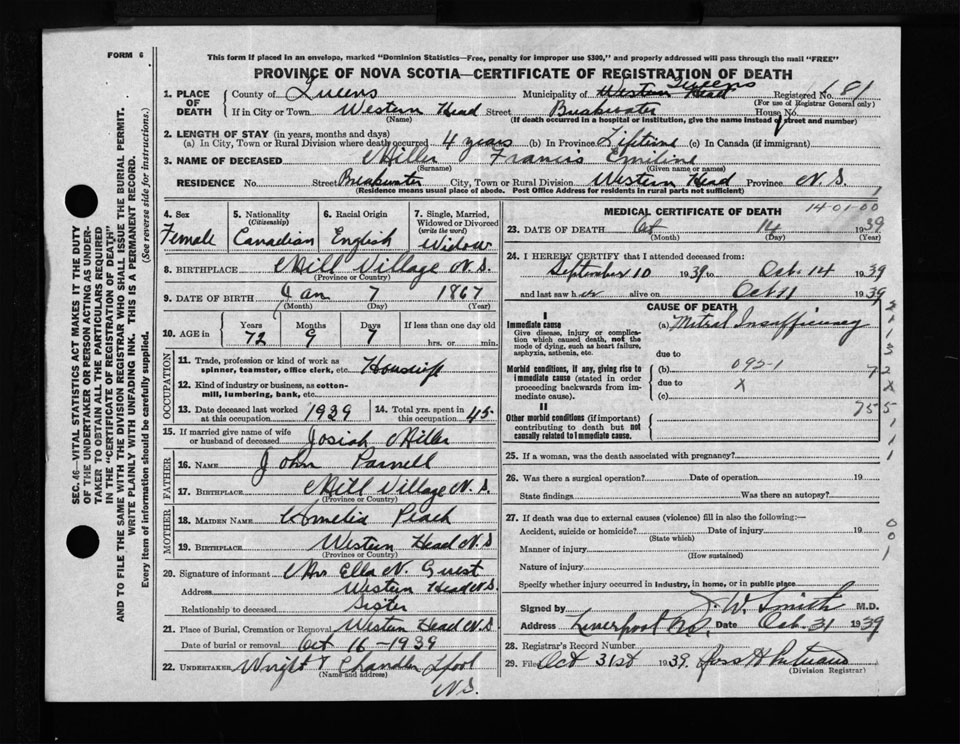 FORM 6
This form if placed in an envelope, marked "Dominion Statistics—Free, penalty for improper use $300," and if properly addressed will pass through the mail "FREE"
PROVINCE OF NOVA SCOTIA—CERTIFICATE OF REGISTRATION OF DEATH
SEC. 46—VITAL STATISTICS ACT MAKES IT THE DUTY
OF THE UNDERTAKER OR PERSON ACTING AS UNDER-
TAKER TO OBTAIN ALL THE PARTICULARS REQUIRED
IN THE "CERTIFICATE OF REGISTRATION OF DEATH"
AND TO FILE THE SAME WITH THE DIVISION REGISTRAR WHO SHALL ISSUE THE BURIAL PERMIT.
WRITE PLAINLY WITH UNFADING INK. THIS IS A PERMANENT RECORD.
Every item of information should be carefully supplied. (See reverse side for instructions.)
1. PLACE OF DEATH County of Queens Municipality of Western Head Queens Registered No. 681
(For use of Registrar General only)
If in City or Town Western Head Street Breakwater House No.
(Name) (If death occurred in a hospital or institution, give the name instead of street and number)
2. LENGTH OF STAY (in years, months and days)
(a) In City, Town or Rural Division where death occurred 4 years (b) In Province Lifetime (c) In Canada (if immigrant)
3. NAME OF DECEASED Miller Francis Emiline
(Surname) (Given name or names)
RESIDENCE No. Street Breakwater City, Town or Rural Division Western Head Province N.S.
(Residence means usual place of abode. Post Office Address for Residents in rural parts not sufficient)
4. Sex 5. Nationality (Citizenship) 6. Racial Origin 7. Single, Married, Widowed or Divorced (write the word)
Female Canadian English Widow
8. BIRTHPLACE Mill Village N.S.
(Province or Country)
9. DATE OF BIRTH Jan 7 1867
(Month) (Day) (Year)
10. AGE in Years Months Days If less than one day old
72 9 7 hrs. or min.
OCCUPATION
11. Trade, profession or kind of work as spinner, teamster, office clerk, etc. Housewife
12. Kind of industry or business, as cotton-mill, lumbering, bank, etc.
13. Date deceased last worked at this occupation 1939 14. Total yrs. spent in this occupation 45
15. If married give name of wife or husband of deceased Josiah Miller
FATHER
16. NAME John Parnell
17. BIRTHPLACE Mill Village N.S.
(Province or Country)
MOTHER
18. MAIDEN NAME Amelia Peach
19. BIRTHPLACE Western Head N.S.
(Province or Country)
20. Signature of informant Mrs Ella N. Guest
Address Western Head N.S.
Relationship to deceased Sister
21. Place of Burial, Cremation or Removal Western Head N.S.
Date of burial or removal Oct 16 - 1939
22. UNDERTAKER Wright & Chandler Lpool
(Name and address)
N.S.
MEDICAL CERTIFICATE OF DEATH 14-01-00
23. DATE OF DEATH Oct 14 1939
(Month) (Day) (Year)
24. I HEREBY CERTIFY that I attended deceased from:
September 10 1939 to Oct. 14 1939
and last saw her alive on Oct 11 1939
CAUSE OF DEATH
I
Immediate cause (a) Mitral Insufficiency
Give disease, injury or complication which caused death, not the mode of dying, such as heart failure, asphyxia, asthenia, etc.
due to
Morbid conditions, if any, giving rise to immediate cause (stated in order proceeding backwards from immediate cause). (b) 092-1
due to X
(c)
II
Other morbid conditions (if important) contributing to death but not causally related to immediate cause.
72
X
755
25. If a woman, was the death associated with pregnancy?
26. Was there a surgical operation? Date of operation 19
State findings Was there an autopsy?
27. If death was due to external causes (violence) fill in also the following:—
Accident, suicide or homicide? Date of injury 19
(State which)
Manner of injury
(How sustained)
Nature of injury
Specify whether injury occurred in industry, in home, or in public place
0
0
1
Signed by J. W. Smith M.D.
Address Liverpool N.S. Date Oct. 31 1939
28. Registrar's Record Number
29. Filed Oct 31st 1939.
(Division Registrar)